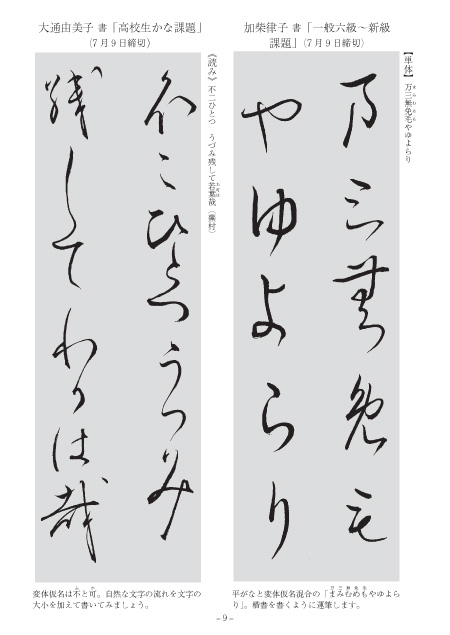 加柴律子 書「一般六級～新級
課題」(7月9日締切)
【単体】 万三無免毛やゆよらり
万三無免毛
やゆよらり
平がなと変体仮名混合の「まみむめもやゆよら
り」。楷書を書くように運筆します。
大通由美子 書「高校生かな課題」
(7月9日締切)
《読み》 不二ひとつ うづみ残して若葉哉 (蕪村)
不二ひとつうつみ
残してわか はは哉
変体仮名は不と可。自然な文字の流れを文字の
大小を加えて書いてみましょう。
－9－